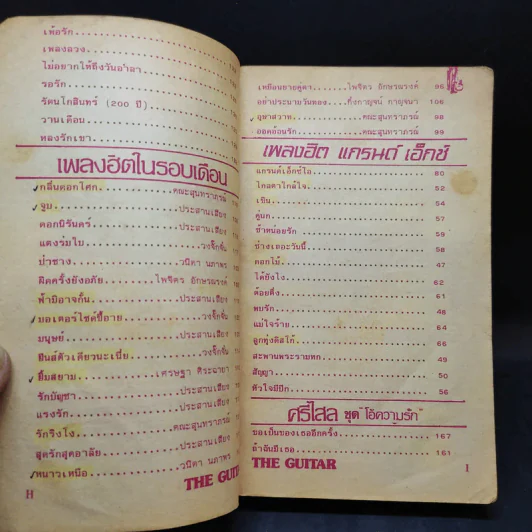 เห้อรัก
เพลงลวง
ไม่อยากให้ถึงวันอำลา
รอรัก
รัตนโกสินทร์ (200 ปี)
วานเตือน
หลงรักเขา
เพลงฮิตในรอบเดือน
กลิ่นดอกโศก คณะสุนทราภรณ์
จูบ ประสานเสียง
ดอกนิรันดร์ ประสานเสียง
แตงร่มใบ วงจั๊กจั่น
ป่าซาง วนิดา นภาพร
ผิดครั้งยังอภัย ไพจิตร อักษรณรงค์
ฟ้ามิอาจกั้น ประสานเสียง
มอเตอร์ไซค์ขี้อาย วงจั๊กจั่น
มนุษย์ ประสานเสียง
ยีนส์ตัวเดียวนะเนี่ย วงจั๊กจั่น
ยิ้มสยาม เศรษฐา ศิระฉายา
รักบัญชา ประสานเสียง
แรงรัก ประสานเสียง
รักริงโง คณะสุนทราภรณ์
สุดรักสุดอาลัย ประสานเสียง
หนาวเหนือ วนิดา นภาพร
H THE GUITAR
เหมือนยายคู่ตา ไพจิตร อักษรณรงค์ 96
อย่าประนายวันทอง กิ่งกาญจน์ กาญจนา 106
อุษาสวาท คณะสุนทราภรณ์ 98
ออดอ้อนรัก คณะสุนทราภรณ์ 99
เพลงฮิต แกรนด์ เอ็กซ์
แกรนด์เอ็กซ์โอ 80
ไกลตาใกล้ใจ 52
เขิน 54
คู่นก 57
ช้าหน่อยรัก 59
ช่างเถอะวันนี้ 58
ดอกไม้ 47
ได้ยังไง 62
ต้อยติ่ง 61
พบรัก 48
แม่ใจร้าย 64
ลูกทุ่งดิสโก้ 66
สะพานพระรามหก 49
สัญญา 50
หัวใจมีปีก 56
ศรีไสล ชุด "โอ้ความรัก"
ขอเป็นของเธออีกครั้ง 167
ถ้าฉันมีเธอ 161
THE GUITAR I